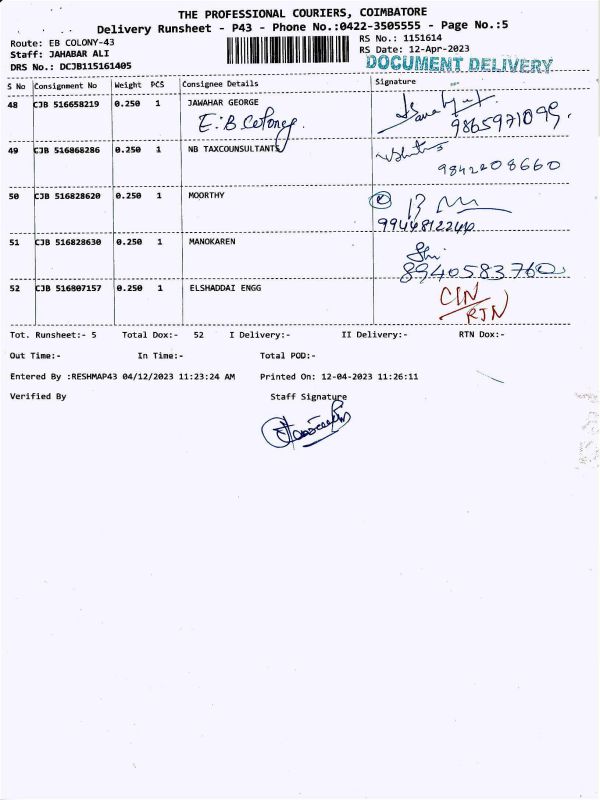 THE PROFESSIONAL COURIERS, COIMBATORE
Delivery Runsheet - P43 - Phone No.:0422-3505555 - Page No.:5
Route: EB COLONY-43 RS No.: 1151614
Staff: JAHABAR ALI RS Date: 12-Apr-2023
DRS No.: DCJB115161405 DOCUMENT DELIVERY
S No Consignment No Weight PCS Consignee Details Signature
48 CJB 516658219 0.250 1 JAWAHAR GEORGE
E.B Colony. 9865971099.
49 CJB 516868286 0.250 1 NB TAXCOUNSULTANTS
9842208660
50 CJB 516828620 0.250 1 MOORTHY
9944812240
51 CJB 516828630 0.250 1 MANOKAREN
8940583760
52 CJB 516807157 0.250 1 ELSHADDAI ENGG CIN
RTN
Tot. Runsheet:- 5 Total Dox:- 52 I Delivery:- II Delivery:- RTN Dox:-
Out Time:- In Time:- Total POD:-
Entered By :RESHMAP43 04/12/2023 11:23:24 AM Printed On: 12-04-2023 11:26:11
Verified By Staff Signature